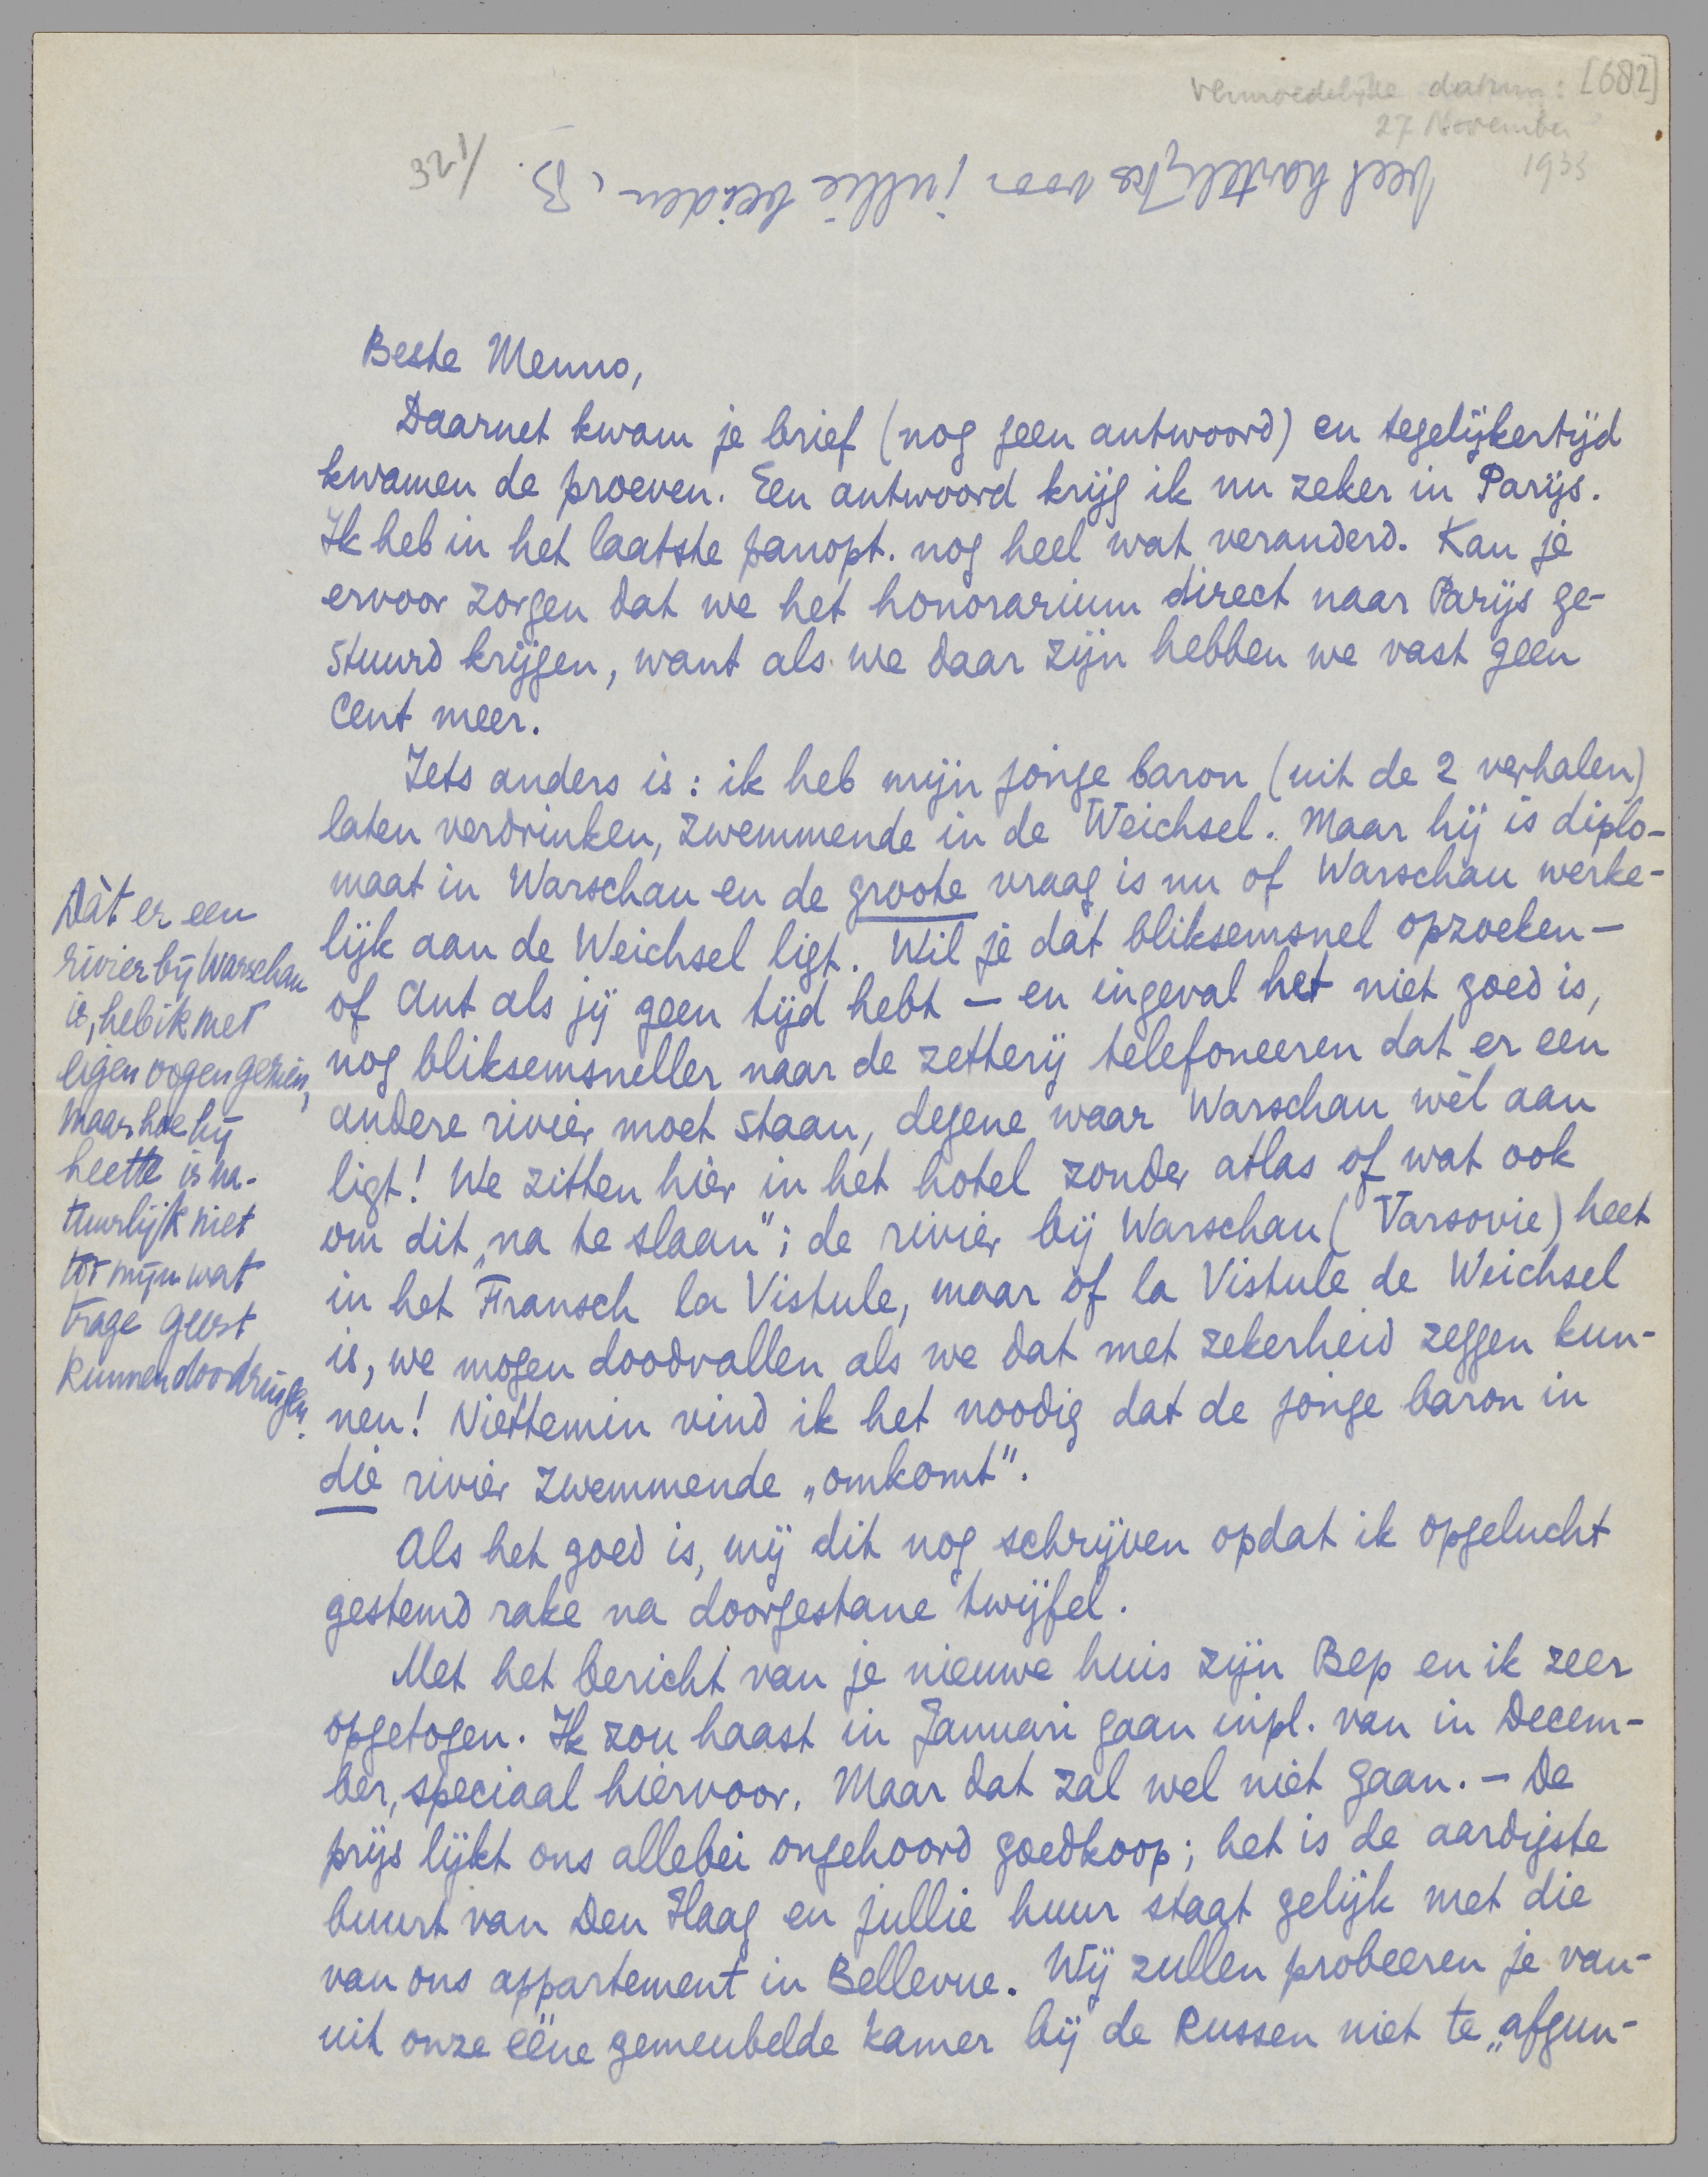 Vermoedelijke datum: [682]
27 November
1933
veel hartelijks voor jullie beiden, B.
321/
Beste Menno,
Daarnet kwam je brief (nog geen antwoord) en tegelijkertijd
kwamen de proeven. Een antwoord krijg ik nu zeker in Parijs.
Ik heb in het laatste panopt. nog heel wat veranderd. Kan je
ervoor zorgen dat we het honorarium direct naar Parijs ge-
stuurd krijgen, want als we daar zijn hebben we vast geen
cent meer.
Iets anders is: ik heb mijn jonge baron (uit de 2 verhalen)
laten verdrinken, zwemmende in de Weichsel. Maar hij is diplo-
maat in Warschau en de groote vraag is nu of Warschau werke-
lijk aan de Weichsel ligt. Wil je dat bliksemsnel opzoeken —
of Ant als jij geen tijd hebt — en ingeval het niet goed is,
nog bliksemsneller naar de zetterij telefoneeren dat er een
andere rivier moet staan, degene waar Warschau wèl aan
ligt! We zitten hier in het hotel zonder atlas of wat ook
om dit „na te slaan"; de rivier bij Warschau (Varsovie) heet
in het Fransch la Vistule, maar of la Vistule de Weichsel
is, we mogen doodvallen als we dat met zekerheid zeggen kun-
nen! Niettemin vind ik het noodig dat de jonge baron in
die rivier zwemmende „omkomt".
Als het goed is, mij dit nog schrijven opdat ik opgelucht
gestemd rake na doorgestane twijfel.
Met het bericht van je nieuwe huis zijn Bep en ik zeer
opgetogen. Ik zou haast in Januari gaan inpl. van in Decem-
ber, speciaal hiervoor. Maar dat zal wel niet gaan. — De
prijs lijkt ons allebei ongehoord goedkoop; het is de aardigste
buurt van Den Haag en jullie huur staat gelijk met die
van ons appartement in Bellevue. Wij zullen probeeren je van-
uit onze ééne gemeubelde kamer bij de Russen niet te „afgun-
Dàt er een
rivier bij Warschau
is, heb ik met
eigen oogen gezien,
maar hoe hij
heette is na-
tuurlijk niet
tot mijn wat
trage geest
kunnen doordringen.